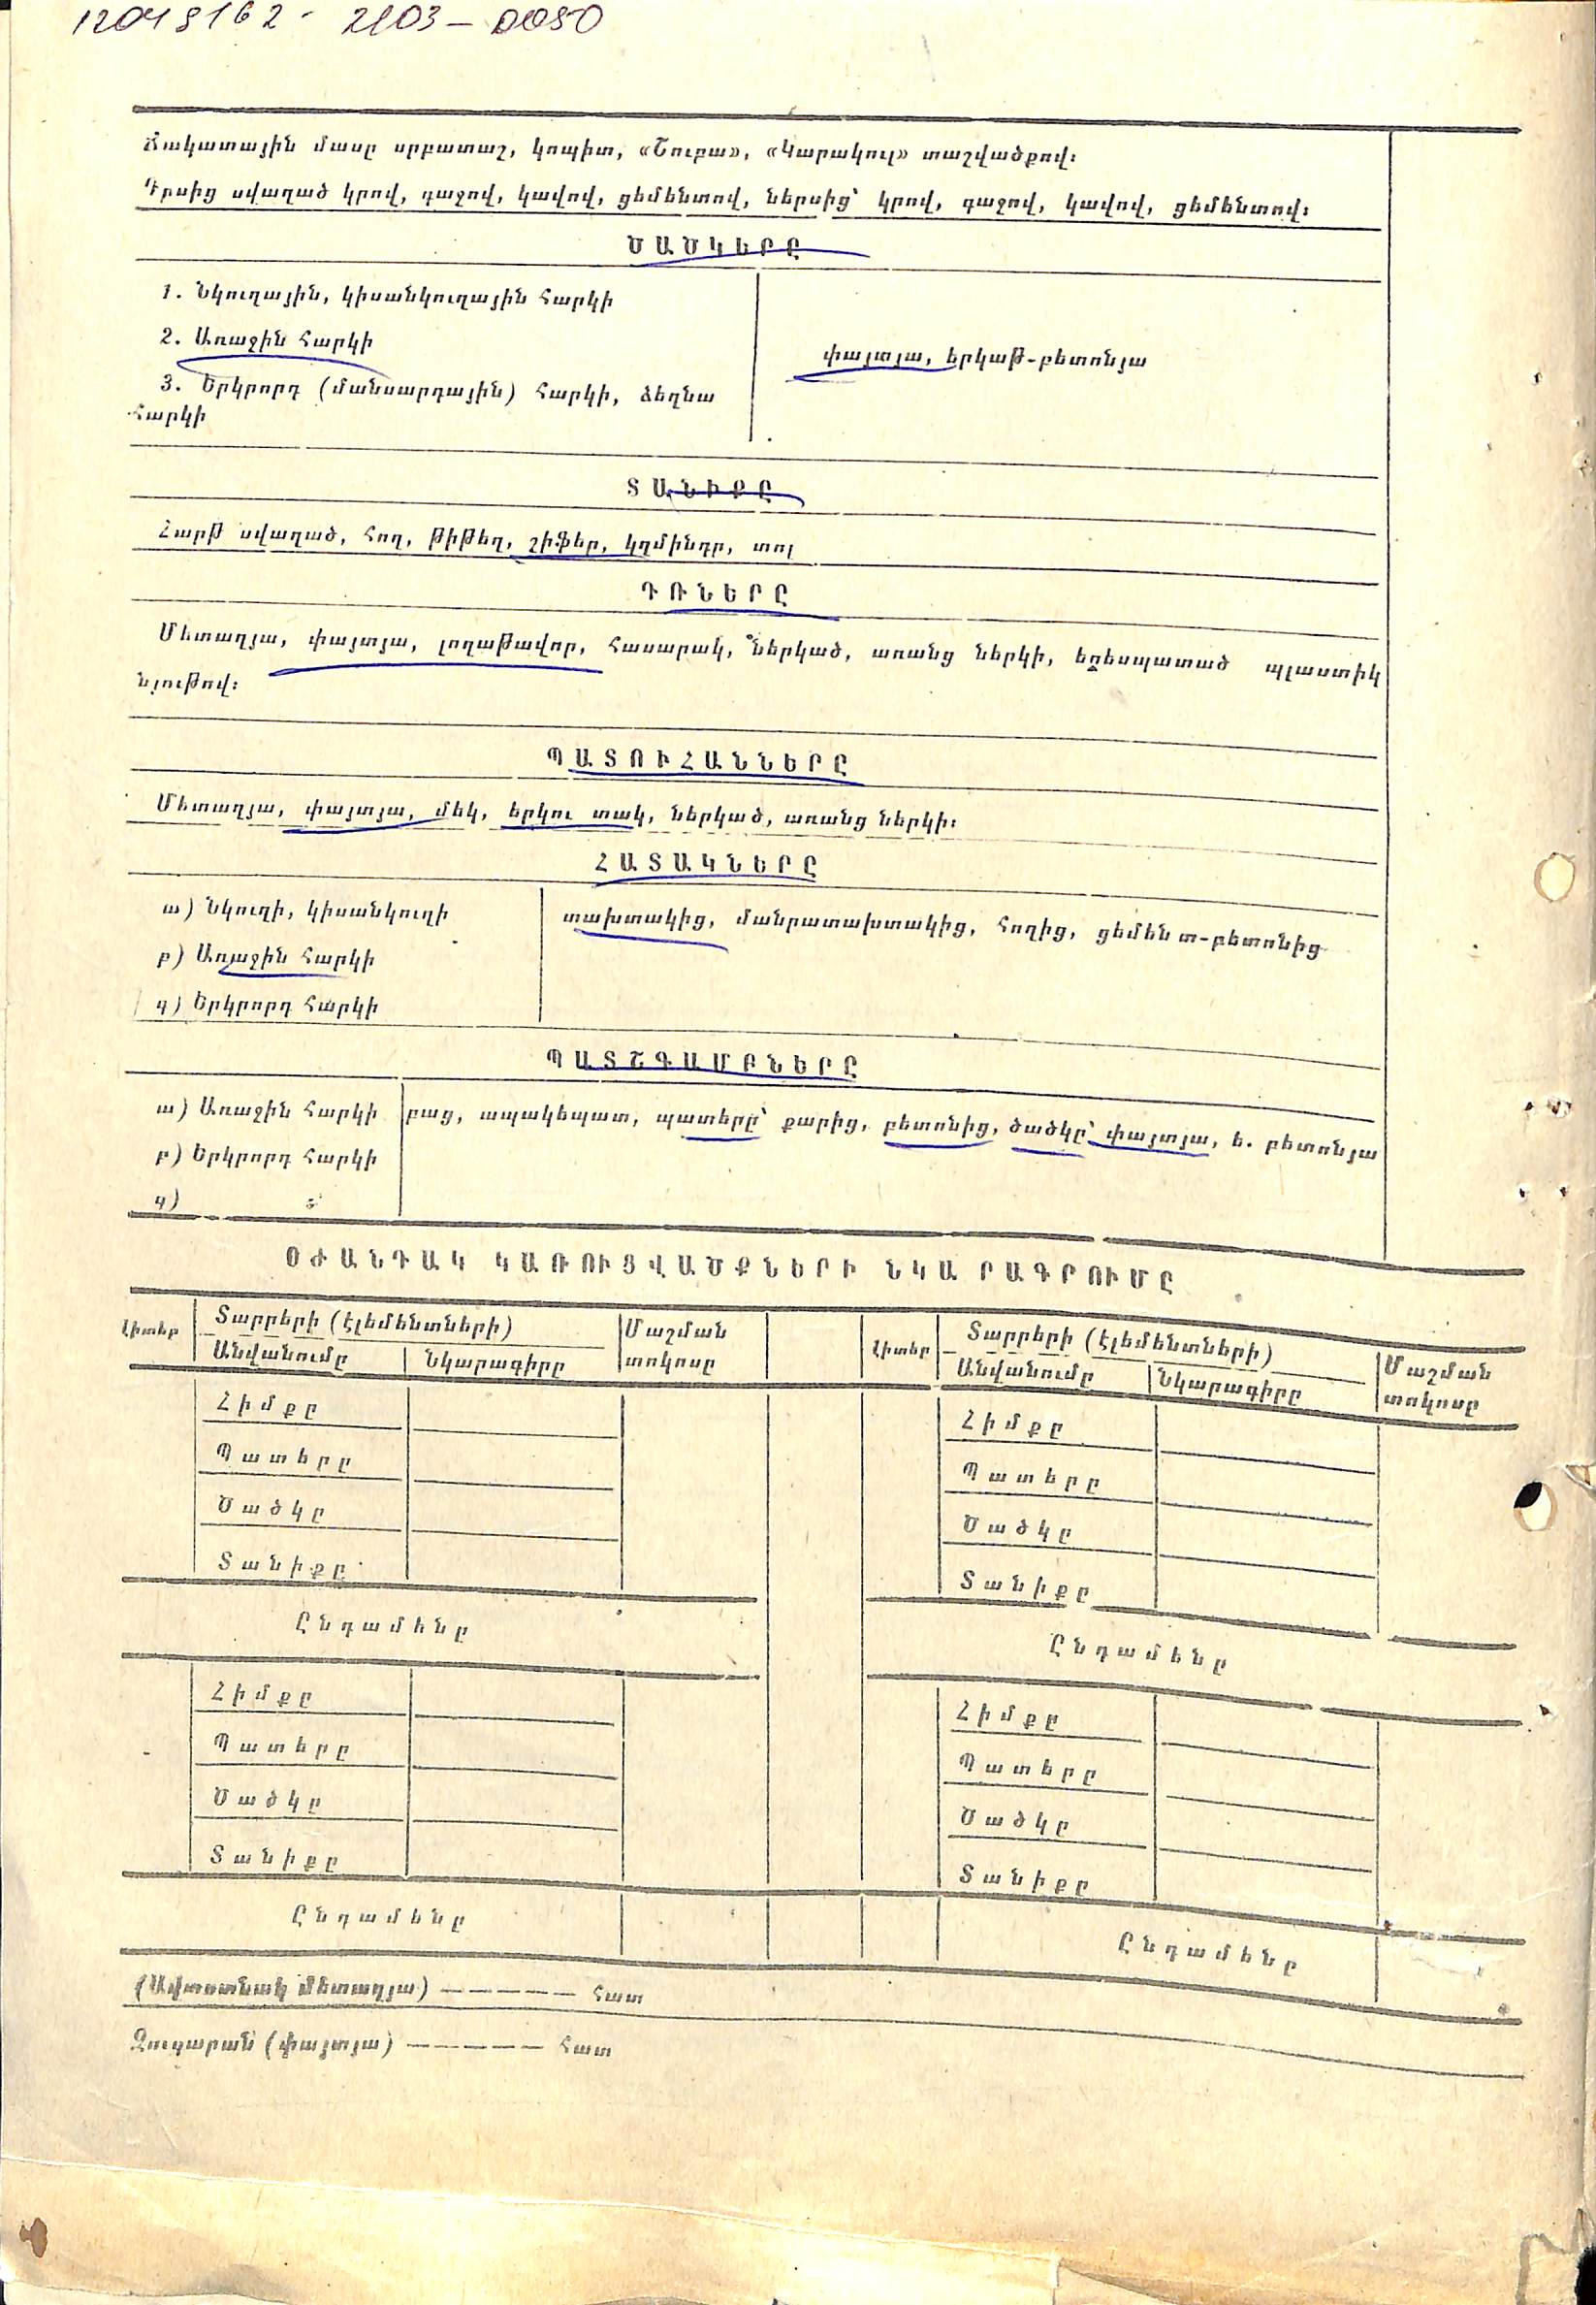 12048162 - 2103-0050
Ճակատային մասը սրբատաշ, կոպիտ, «Շուբա», «Կարակուլ» տաշվածքով։
Դրսից սվաղած կրով, գաջով, կավով, ցեմենտով, ներսից՝ կրով, գաջով, կավով, ցեմենտով։
ԾԱԾԿԵՐԸ
1. Նկուղային, կիսանկուղային հարկի
2. Առաջին հարկի
փայտյա, երկաթ-բետոնյա
3. Երկրորդ (մանսարդային) հարկի, ձեղնա
հարկի
ՏԱՆԻՔԸ
Հարթ սվաղած, հող, թիթեղ, շիֆեր, կղմինդր, տոլ
ԴՌՆԵՐԸ
Մետաղյա, փայտյա, լողաթավոր, հասարակ, ներկած, առանց ներկի, երեսպատած պլաստիկ
նյութով։
ՊԱՏՈՒՀԱՆՆԵՐԸ
Մետաղյա, փայտյա, մեկ, երկու տակ, ներկած, առանց ներկի։
ՀԱՏԱԿՆԵՐԸ
ա) Նկուղի, կիսանկուղի
տախտակից, մանրատախտակից, հողից, ցեմենտ-բետոնից
բ) Առաջին հարկի
գ) Երկրորդ հարկի
ՊԱՏՇԳԱՄԲՆԵՐԸ
ա) Առաջին հարկի բաց, ապակեպատ, պատերը՝ քարից, բետոնից, ծածկը՝ փայտյա, ե. բետոնյա
բ) Երկրորդ հարկի
գ)
ՕԺԱՆԴԱԿ ԿԱՌՈՒՑՎԱԾՔՆԵՐԻ ՆԿԱՐԱԳՐՈՒՄԸ
Լիտեր Տարրերի (էլեմենտների) Մաշման Լիտեր Տարրերի (էլեմենտների) Մաշման
Անվանումը Նկարագիրը տոկոսը Անվանումը Նկարագիրը տոկոսը
Հիմքը Հիմքը
Պատերը Պատերը
Ծածկը Ծածկը
Տանիքը Տանիքը
Ընդամենը Ընդամենը
Հիմքը Հիմքը
Պատերը Պատերը
Ծածկը Ծածկը
Տանիքը Տանիքը
Ընդամենը Ընդամենը
(Ավտոտնակ մետաղյա) ————— հատ
Զուգարան (փայտյա) ————— հատ